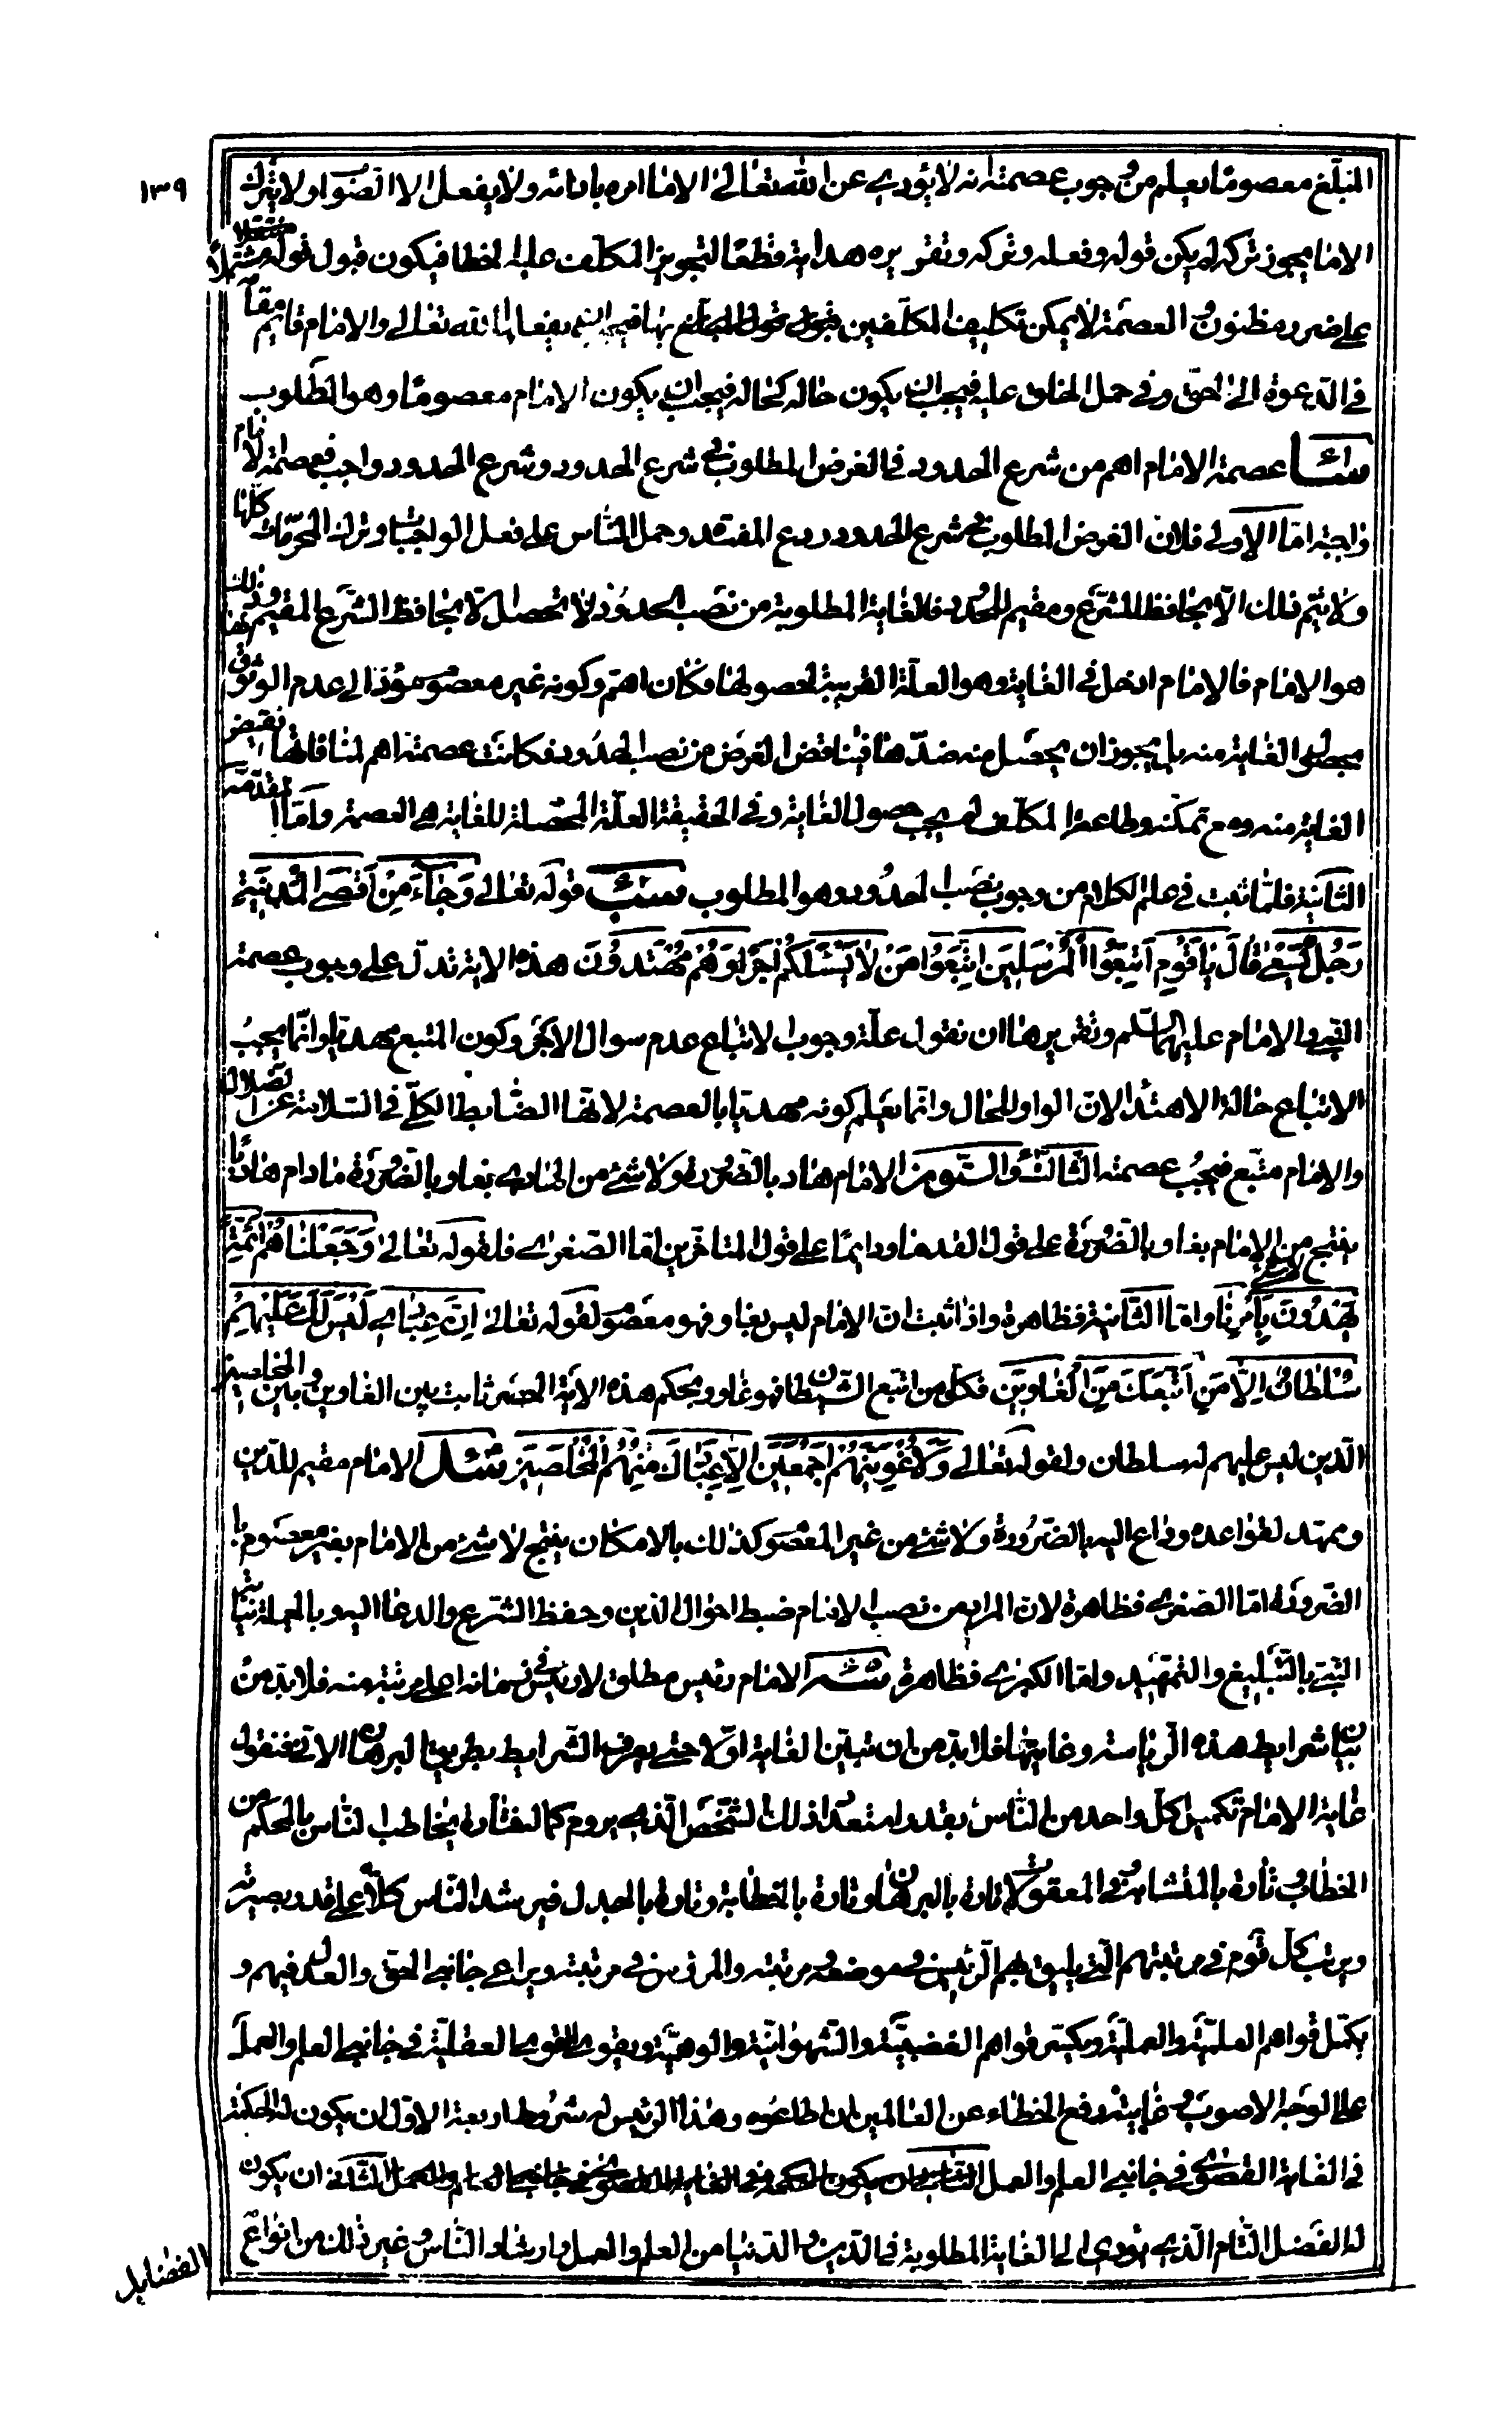 ١٣٩
المبلّغ معصومًا يعلم من وجوب عصمته انه لا يؤدي عن الله تعالى الا ما امره بادائه ولا يفعل الا الصواب ولا يترك
الا ما يجوز تركه لم يكن قوله وفعله وتركه وتقريره هداية قطعًا لتجويز المكلف عليه الخطا فيكون قبول قوله مشتملًا
على ضرر مظنون العصمة لا يمكن تكليف المكلفين يفعله الله تعالى والامام قايم مقامه
في الدعوة الى الحق وفي حمل الخلق عليه فيجب ان يكون حاله كحاله فيجب ان يكون الامام معصومًا وهو المطلوب
عصمة الامام اهم من شرع الحدود في الغرض المطلوب في شرع الحدود وشرع الحدود واجب فعصمة الامام
واجبة اما الاولى فلان الغرض المطلوب في شرع الحدود ردع المفسد وحمل الناس على فعل الواجبات وترك المحرمات كلها
ولا يتم ذلك الا بحافظ للشرع ومقيم للحدود فالغاية المطلوبة من نصب الحدود لا تحصل الا بحافظ الشرع المقيم لها وذلك
هو الامام فالامام ادخل في الغاية وهو العلة القريبة لحصولها فكان اهم وكونه غير معصوم مؤد الى عدم الوثوق
بحصول الغاية منه بل يجوز ان يحصل منه ضدها فيناقض الغرض من نصب الحدود فكانت عصمته اهم لمنافاتها نقيض
الغاية منه ومع تمكنه وطاعة المكلف له يجب حصول الغاية وفي الحقيقة العلة المحصلة للغاية هي العصمة واما المقدمة
الثانية فلما ثبت في علم الكلام من وجوب نصب الحدود وهو المطلوب قوله تعالى وَجَاءَ مِنْ أَقْصَى الْمَدِينَةِ
رَجُلٌ يَسْعَى قَالَ يَا قَوْمِ اتَّبِعُوا الْمُرْسَلِينَ اتَّبِعُوا مَنْ لَا يَسْئَلُكُمْ أَجْرًا وَهُمْ مُهْتَدُونَ هذه الاية تدل على وجوب عصمة
النبي والامام عليهما السلم وتقريرها ان نقول علة وجوب الاتباع عدم سوال الاجر وكون المتبع مهديا وانما يجب
الاتباع حالة الاهتداء لان الواو للحال وانما يعلم كونه مهديا بالعصمة لانها الضابط الكلي في السلامة عن الضلال
والامام متبع فيجب عصمته الثالث والستون الامام هاد بالضرورة ولا شئ من الهادي بغاو بالضرورة ما دام هاديًا
ينتج لا شئ من الامام بغاو بالضرورة على قول القدماء ودايمًا على قول المتاخرين اما الصغرى فلقوله تعالى وَجَعَلْنَاهُمْ أَئِمَّةً
يَهْدُونَ بِأَمْرِنَا واما الثانية فظاهرة واذا ثبت ان الامام ليس بغاو فهو معصوم لقوله تعالى إِنَّ عِبَادِي لَيْسَ لَكَ عَلَيْهِمْ
سُلْطَانٌ إِلَّا مَنِ اتَّبَعَكَ مِنَ الْغَاوِينَ فكل من اتبع الشيطان فهو غاو وبحكم هذه الاية الحصر ثابت بين الغاوين وبين المخلصين
الذين ليس عليهم له سلطان ولقوله تعالى وَلَأُغْوِيَنَّهُمْ أَجْمَعِينَ إِلَّا عِبَادَكَ مِنْهُمُ الْمُخْلَصِينَ الامام مقيم للدين
وممهد لقواعده وداع اليه بالضرورة ولا شئ من غير المعصوم كذلك بالامكان ينتج لا شئ من الامام بغير معصوم با
الضرورة اما الصغرى فظاهرة لان المراد من نصب الامام ضبط احوال الدين وحفظ الشرع والدعاء اليه وبالجملة
النبي بالتبليغ والتمهيد واما الكبرى فظاهرة الامام رئيس مطلق لا رئيس في زمانه اعلى مرتبة منه فلا بد من
بيان شرايط هذه الرياسة وغايتها فلا بد من ان تبين الغاية اولا حتى يعرف الشرايط بطريق البرهان الآتي فنقول
غاية الامام تكميل كل واحد من الناس بقدر استعداد ذلك الشخص الذي يروم كماله فتارة يخاطب الناس بالمحكم من
الخطاب وتارة بالمتشابه وفي المعقولات تارة بالبرهان وتارة بالخطابة وتارة بالجدل فيرشد الناس كلًا على قدر بصيرته
ويرتب كل قوم في مرتبتهم التي يليق بهم الرئيس في موضعه ومرتبته والمرؤس في مرتبته ويراعي جانبي الحق والعدل فيهم و
يكمل قواهم العلمية والعملية ويكسر قواهم الغضبية والشهوانية والوهمية ويقوي القوى العقلية في جانبي العلم والعمل
على الوجه الاصوب غايته دفع الخطاء عن العالمين ان اطاعوه وهذا الرئيس له شروط اربعة الاول ان يكون له الحكمة
في الغاية القصوى في جانبي العلم والعمل الثاني ان يكون
له الفضل التام الذي يؤدي الى الغاية المطلوبة في الدين والدنيا من العلم والعمل وارشاد الناس وغير ذلك من انواع
الفضايل